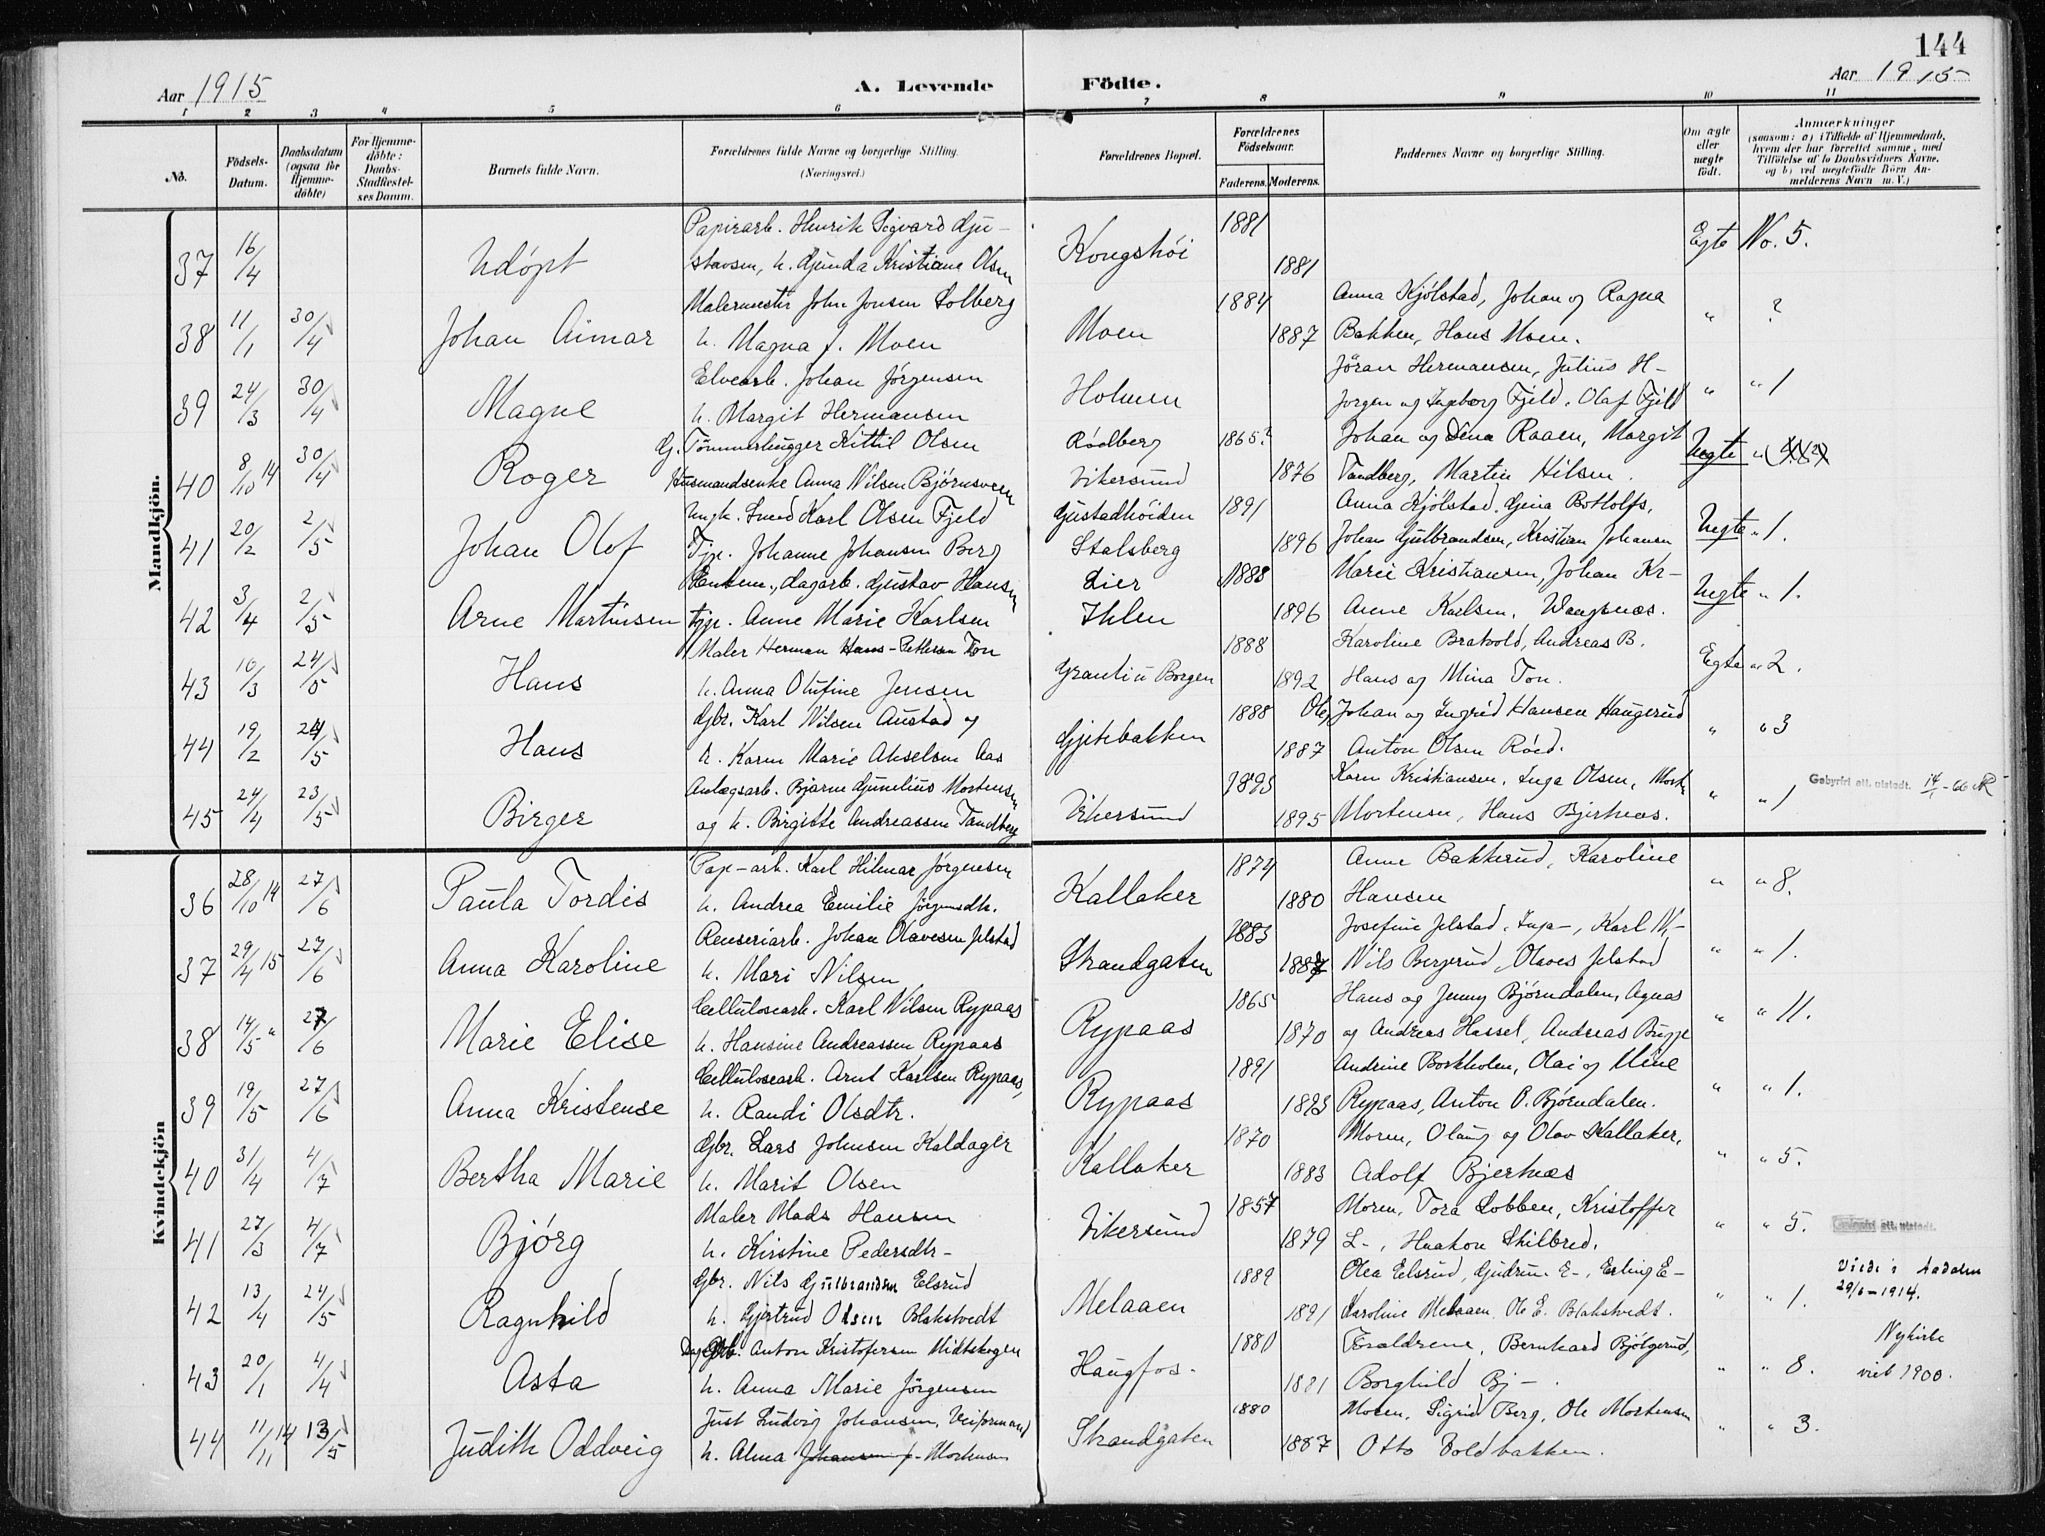 144
Aar 1915
A. Levende Födte.
Aar 1915
1 2 3 4 5 6 7 8 9 10 11
No.
Födsels-Datum.
Daabsdatum (ogsaa för Hjemme-döbte)
For Hjemme-döbte: Daabs-Stadfæstel-ses Datum.
Barnets fulde Navn.
Forældrenes fulde Navne og borgerlige Stilling.
(Næringsvei.)
Forældrenes Bopæl.
Forældrenes Födselsaar.
Faderens. Moderens.
Faddernes Navne og borgerlige Stilling.
Om ægte eller uægte födt.
Anmærkninger
(saasom: a) i Tilfælde af Hjemmedaab, hvem der har forrettet samme, med Tilföielse af to Daabsvidners Navne, og b) ved uægtefödte Börn An-melderens Navn m. V.)
Mandkjön.
37 16/4 Udöpt Papirarb. Henrik Sigvard Gju- Kongshöi 1881 Egte No. 5.
stavsen, h. Gjunda Kristiane Olsen 1881
38 11/1 30/4 Johan Aimar Malermester John Jonsen Solberg Moen 1884 Anna Kjölstad, Johan og Ragna " ?
h. Magna f. Moen 1887 Bakken, Hans Moen.
39 24/3 30/4 Magne Elvearb. Johan Jörgensen Holmen Jöran Hermansen, Julius H- " " 1
h. Margit Hermansen Jorgen og Ingeborg Fjeld. Olaf Fjeld
40 8/10 14 30/4 Roger G. Tömmerhugger Kittil Olsen Rödberg 1865? Johan og Dina Raaen, Margit Uegte "
Husmandsenke Anna Nilsen Björnsveen Vikersund 1876 Tandberg, Martin Hilsen.
41 20/2 2/5 Johan Olof Ungk. Smed Karl Olsen Fjeld Gustadhöiden 1891 Anna Kjölstad, Gina Bottolfs, Uegte " 1.
Tjp. Johanne Johansen Berg Stalsberg 1896 Johan Gulbrandsen, Kristian Johansen
42 3/4 2/5 Arne Martinsen Enkem., dagarb. Gustav Hansen Lier 1888 Marie Kristiansen, Johan Kr- Uegte " 1.
tjp. Anne Marie Karlsen Ihlen 1896 Anne Karlsen,
43 10/3 24/5 Hans Maler Herman Hans-Pettersen Ton 1888 Karoline Brakvold, Andreas B. Egte " 2.
h. Anna Olufine Jensen Borgen 1892 Hans og Mina Ton.
44 19/2 24/5 Hans Gbr. Karl Nilsen Austad og Gjetebakken 1888 Ole, Johan og Ingrid Hansen Haugerud " " 3
h. Karen Marie Akselsen Aas 1887 Anton Olsen Röed.
45 24/4 23/5 Birger Anlægsarb. Bjarne Gjunelius Mortensen Vikersund 1893 Karen Kristiansen, Inga Olsen, " " 1 Gebyrfri att. utstedt. 14/1-66
og h. Birgitte Andreassen Tandberg 1895 Mortensen, Hans Bjerknæs.
Kvindekjön
36 28/10 14 27/6 Paula Tordis Pap-arb. Karl Hilmar Jörgensen Kallaker 1874 Anne Bakkerud, Karoline " " 8.
h. Andrea Emilie Jörgensdtr. 1880 Hansen
37 29/4 15 27/6 Anna Karoline Renseriarb. Johan Olavesen Jelstad Strandgaten 1883 Josefine Jelstad, Inga-, Karl N,- " " 1.
h. Mari Nilsen 1887 Nils Bergerud, Olaves Jelstad
38 14/5 " 27/6 Marie Elise Cellulosearb. Karl Nilsen Rypaas Rypaas 1865 Hans og Jenny Björndalen, Agnas " " 11.
h. Hansine Andreassen Rypaas 1870 og Andreas Hassel, Andreas Brygge
39 19/5 27/6 Anna Kristense Cellulosearb. Arnt Karlsen Rypaas, Rypaas 1891 Andrine Borkholen, Olai og Mine " " 1.
h. Randi Olsdtr. 1893 Rypaas, Anton O. Björndalen.
40 31/4 4/7 Bertha Marie Gbr. Lars Johnsen Kaldager Kallaker 1870 Moren, Olaug og Olav Kallaker, " " 5.
h. Marit Olsen 1883 Adolf Bjerknæs
41 27/3 4/7 Björg Maler Mads Hansen Vikersund 1857 Moren, Tora Lobben, Kristoffer " " 5. Gebyrfri att. utstedt.
h. Kirstine Pedersdtr- 1879 L-, Haakon Skilbred.
42 13/4 24/5 Ragnhild Gbr. Nils Gulbrandsen Elsrud Melaaen 1889 Olea Elsrud, Gudrun E-, Erling E- " " 1. Viede i Aadalen 29/6-1914.
h. Gjertrud Olsen Blakstvedt 1891 Karoline Melaaen, Ole E. Blakstvedt.
43 20/1 4/4 Asta Anton Kristofersen Midtskogen Haugfos. 1880 Foraldrene, Bernhard Bjölgerud, " " 8. Nykirke viet 1900.
h. Anna Marie Jörgensen 1881 Borghild Bj-.
44 11/11 14 13/5 Judith Oddveig Just Ludvig Johansen, Veiformand Strandgaten 1880 Moren, Sigrid Berg, Ole Mortensen " " 3.
h. Alma Johansen f. Mortensen 1887 Otto Voldbakken.